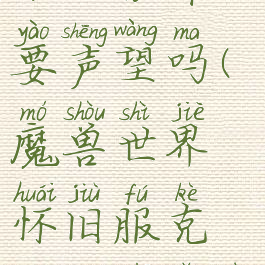 yào shēng wàng ma
要声望吗(
mó shòu shì jiè
魔兽世界
huái jiù fú kè
怀旧服克